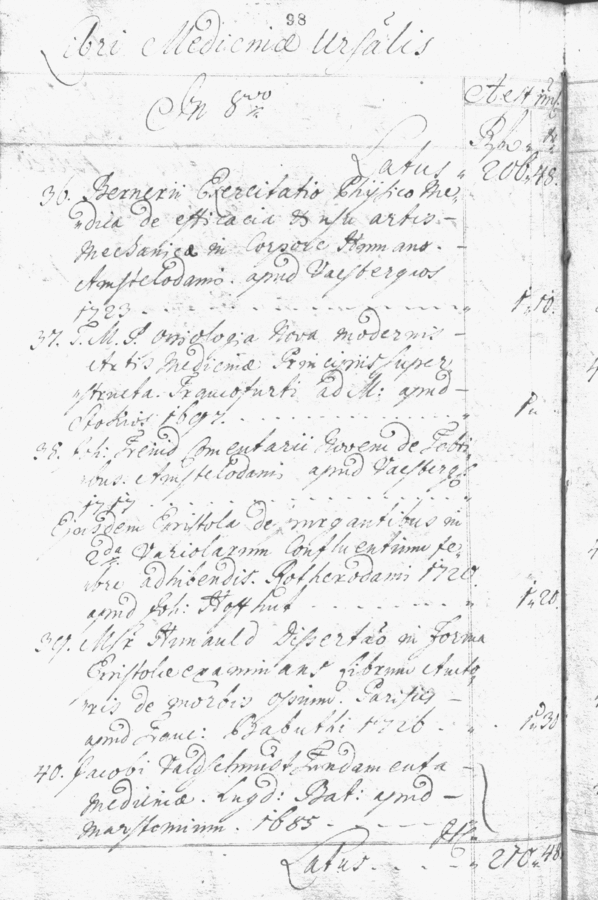 98
Libri Medicinæ Ursalis
In 8vo
Aestim:
Rh „ x
Latus „ 206„48.
36. Bernerii Exercitatio Physico Me-
dica de efficacia & usu artis –
Mechanicæ in Corpore Humano. –
Amstelodami. apud Vaesbergios
1723 1„10.
37. T. M. P. oviologia Nova modernis –
Artis Medicinæ Principiis super
structa. Francofurti ad M: apud –
Stockios 1697. 1„
38. Joh: Freind Comentarii Novem de Febri
bus. Amstelodami apud Vaesbergs
1717
Ejusdem Epistola de purgantibus in
2da Variolarum Confluentium fe-
bre adhibendis. Rotherodami 1720.
apud Joh: Hoffhut 1„20.
39. Msr Hunauld Dissertatio in forma
Epistolæ examinans Librum Aucto
ris de morbis ossium. Parisiis –
apud Franc: Babuthi 1726 1„30
40. Jacobi Valdschmidt Fundamenta –
Medicinæ. Lugd: Bat: apud –
Marstemium. 1685
Latus „ 210„48